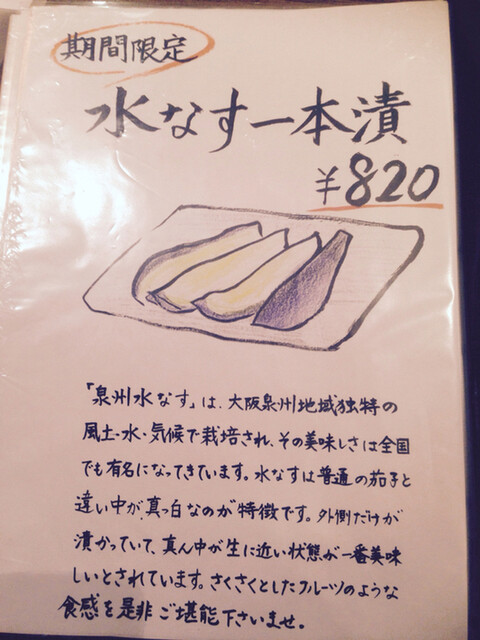 期間限定
水なす一本漬
¥820
「泉州水なす」は、大阪泉州地域独特の
風土・水・気候で栽培され、その美味しさは全国
でも有名になってきています。水なすは普通の茄子と
違い中が、真っ白なのが特徴です。外側だけが
漬かっていて、真ん中が生に近い状態が一番美味
しいとされています。さくさくとしたフルーツのような
食感を是非ご堪能下さいませ。